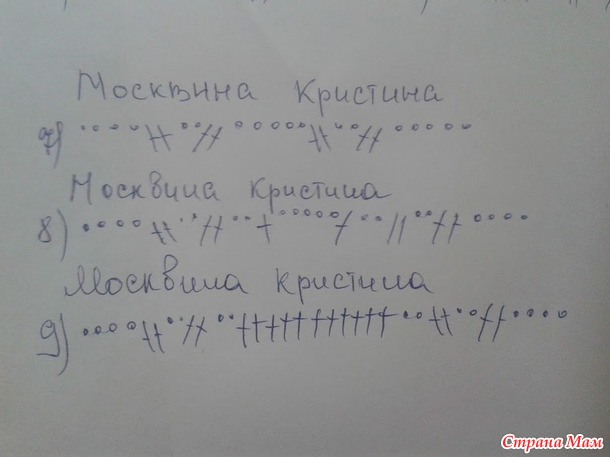 Москвина Кристина
7)
Москвина Кристина
8)
Москвина Кристина
9)
Страна Мам